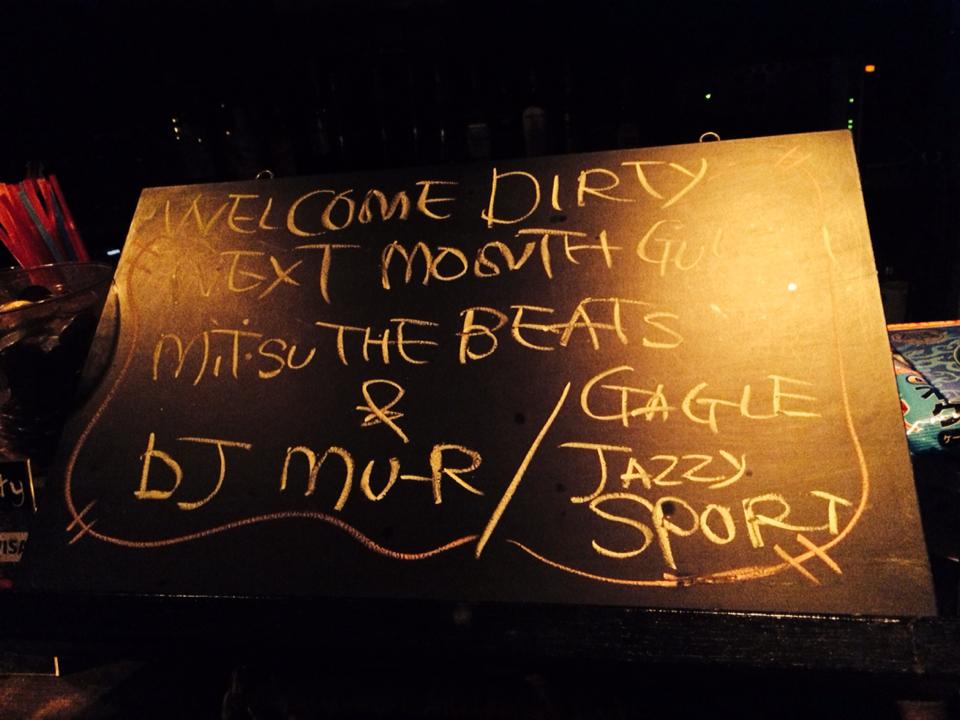 WELCOME DIRTY
NEXT MONTH
MITSU THE BEATS
&
DJ MU-R /
GAGLE
JAZZY
SPORT
VISA